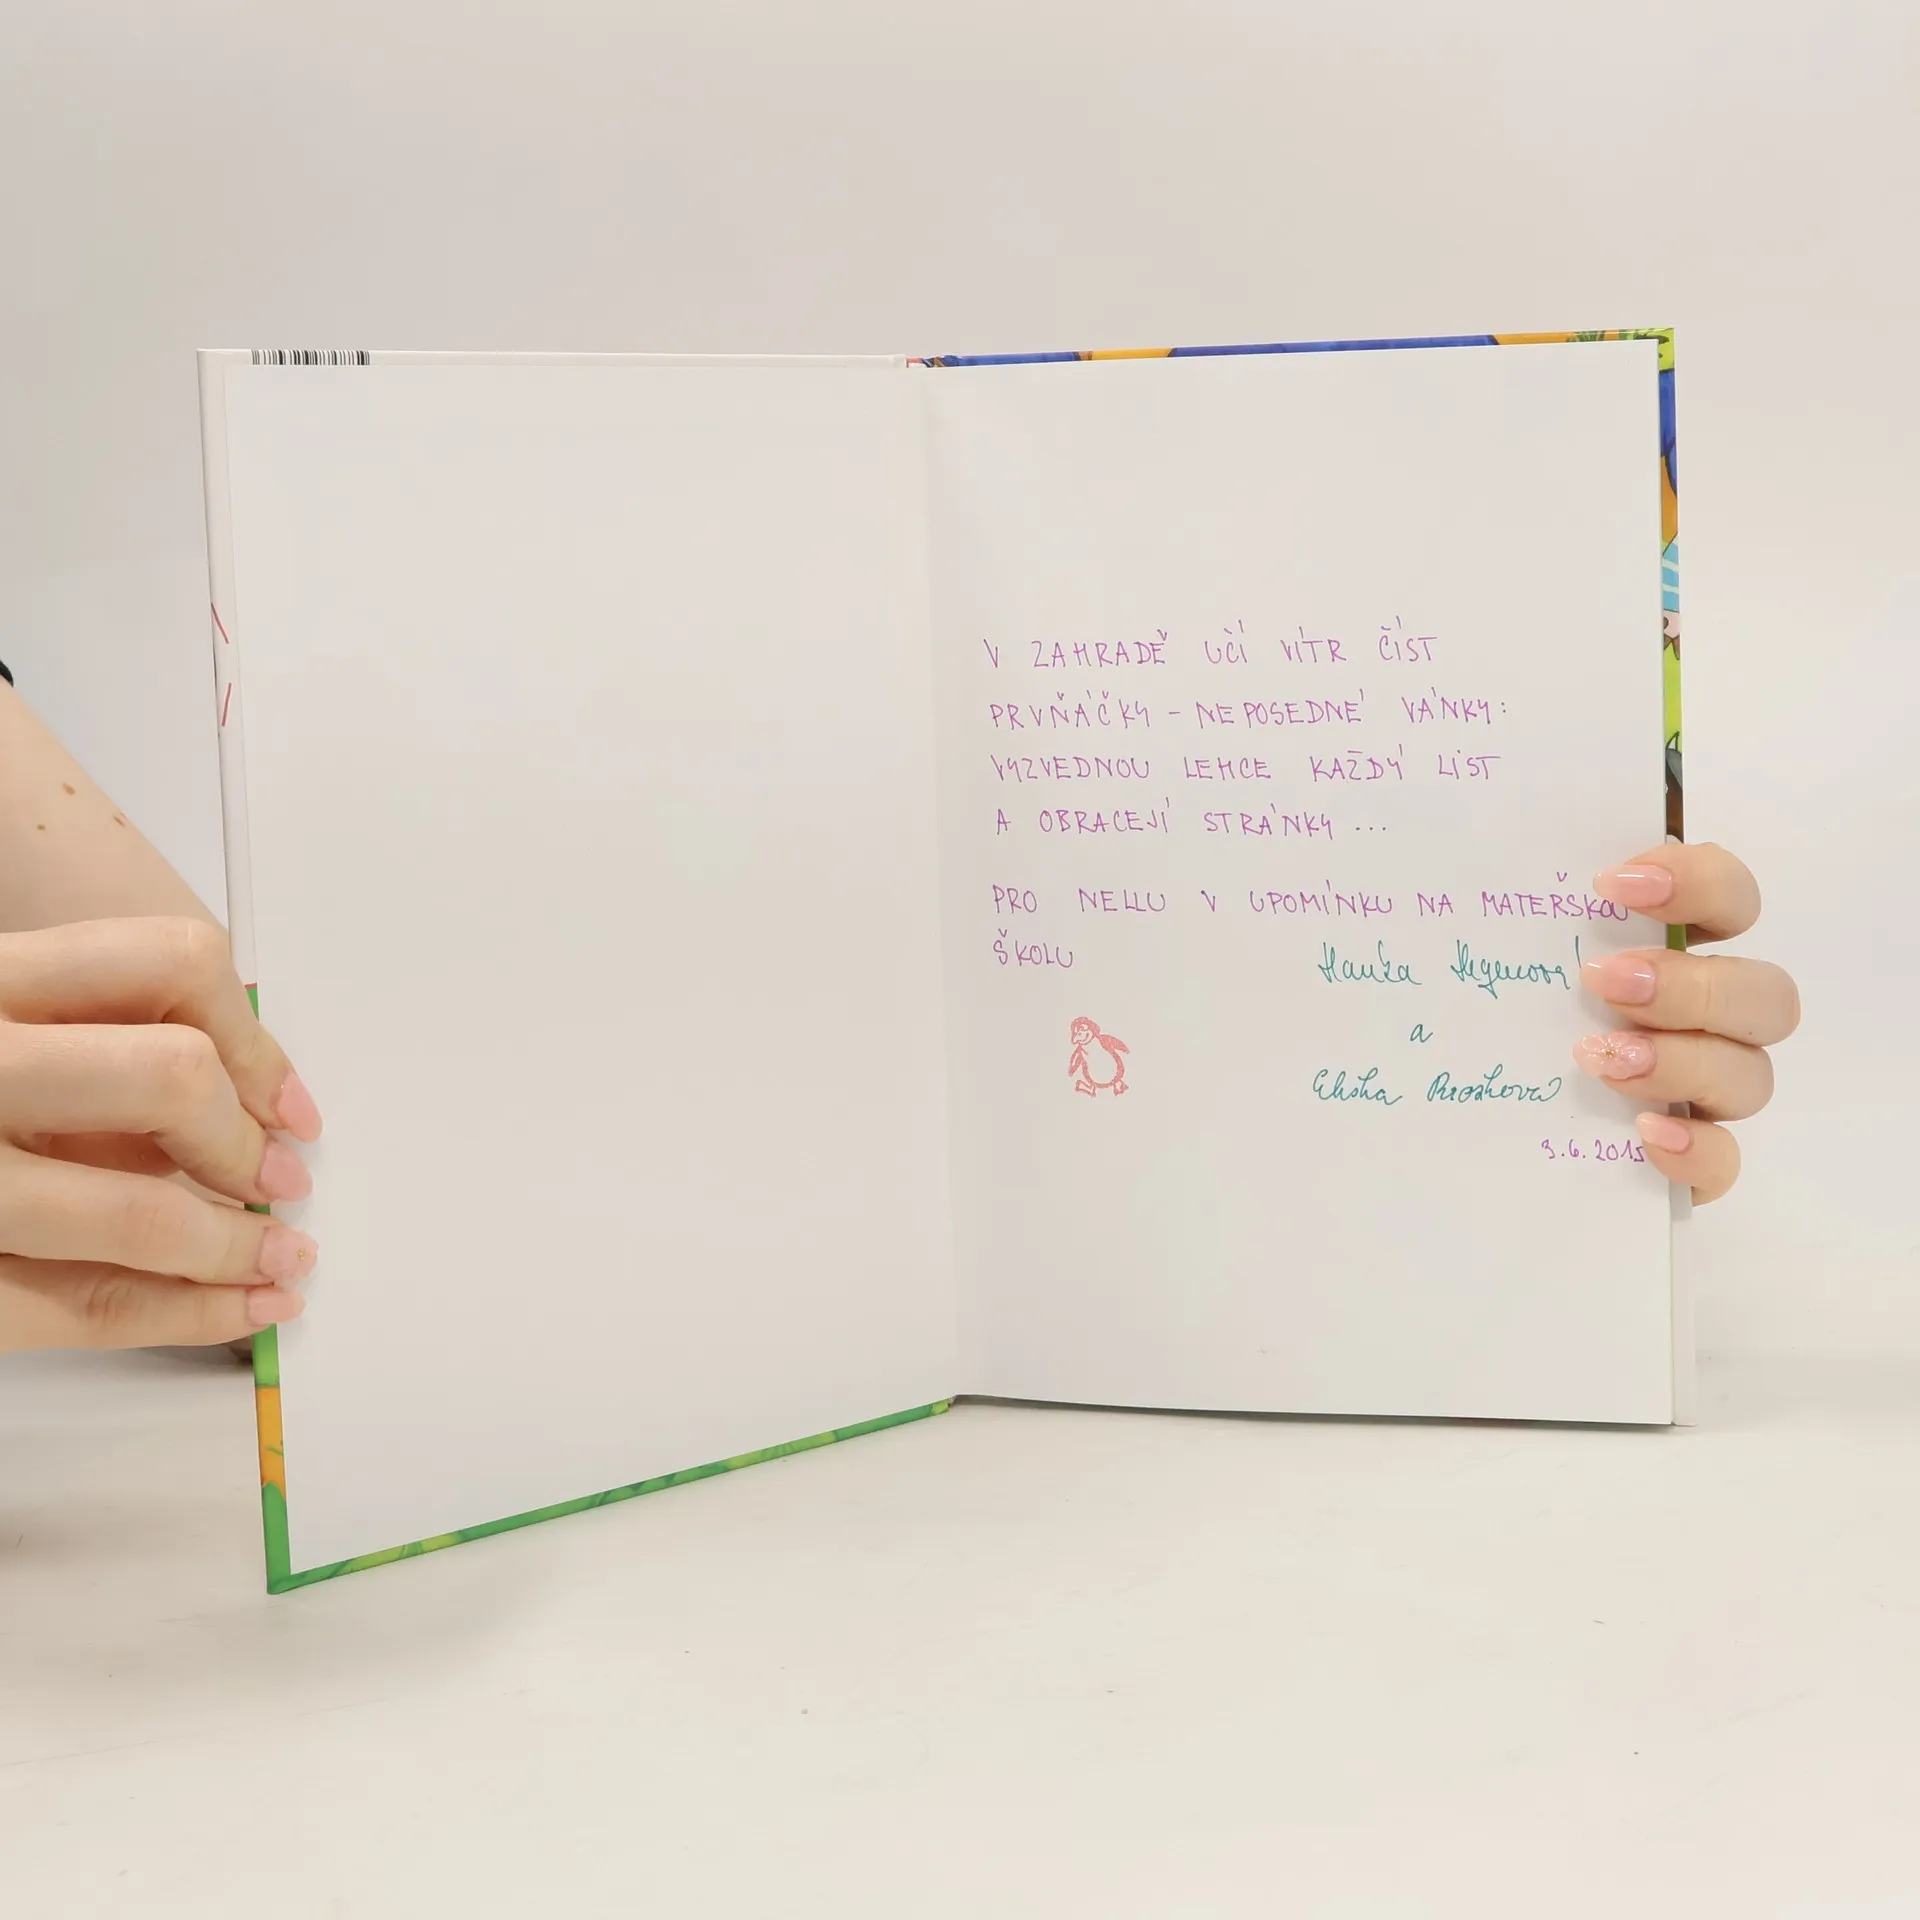 V ZAHRADĚ UČÍ VÍTR ČÍST
PRVŇÁČKY - NEPOSEDNÉ VÁNKY:
VYZVEDNOU LEHCE KAŽDÝ LIST
A OBRACEJÍ STRÁNKY ...
PRO NELLU V UPOMÍNKU NA MATEŘSKOU
ŠKOLU
Hanka
a
Eliška
3.6.2015